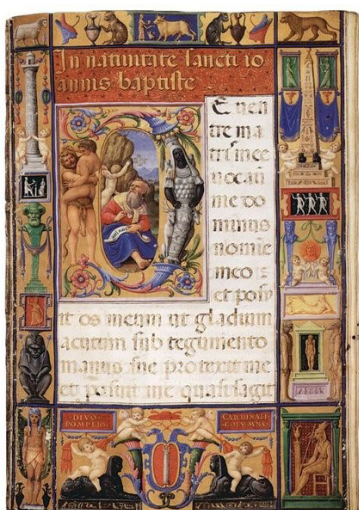 In nativitate sancti io
annis baptiste
E ven
tre ma
tris mee
vocavit
me do
minus
nomine
meo :
et posu
it os meum ut gladium
acutum sub tegumento
manus sue protexit me
et posuit me quasi sagit
DIVO
POMPEIO
CARDINALI
COLVMNA